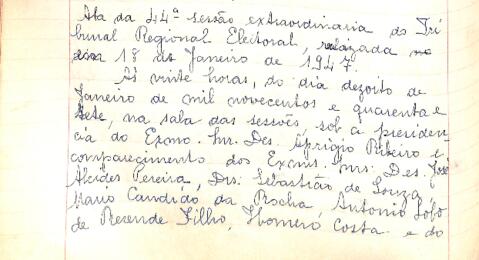 Ata da 44ª sessão extraordinaria do Tri
bunal Regional Eleitoral, realizada no
dia 18 de Janeiro de 1947.
Às vinte horas, do dia dezoito de
Janeiro de mil novecentos e quarenta e
sete, na sala das sessões sob a presiden
cia do Exmo. Snr. Des. Aprigio Ribeiro e
comparecimento dos Exmos. Snrs. Des. José
Alcides Pereira, Drs. Sebastião de Souza,
Mario Candido da Rocha, Antonio Lobo
de Resende Filho, Homero Costa e do